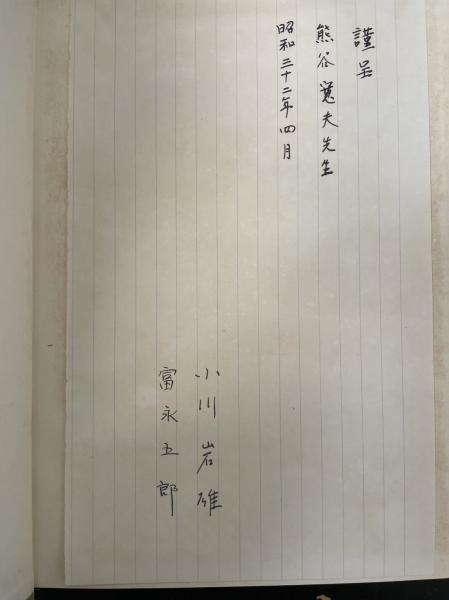 謹呈
熊谷寛夫先生
昭和三十二年四月
小川岩雄
富永五郎